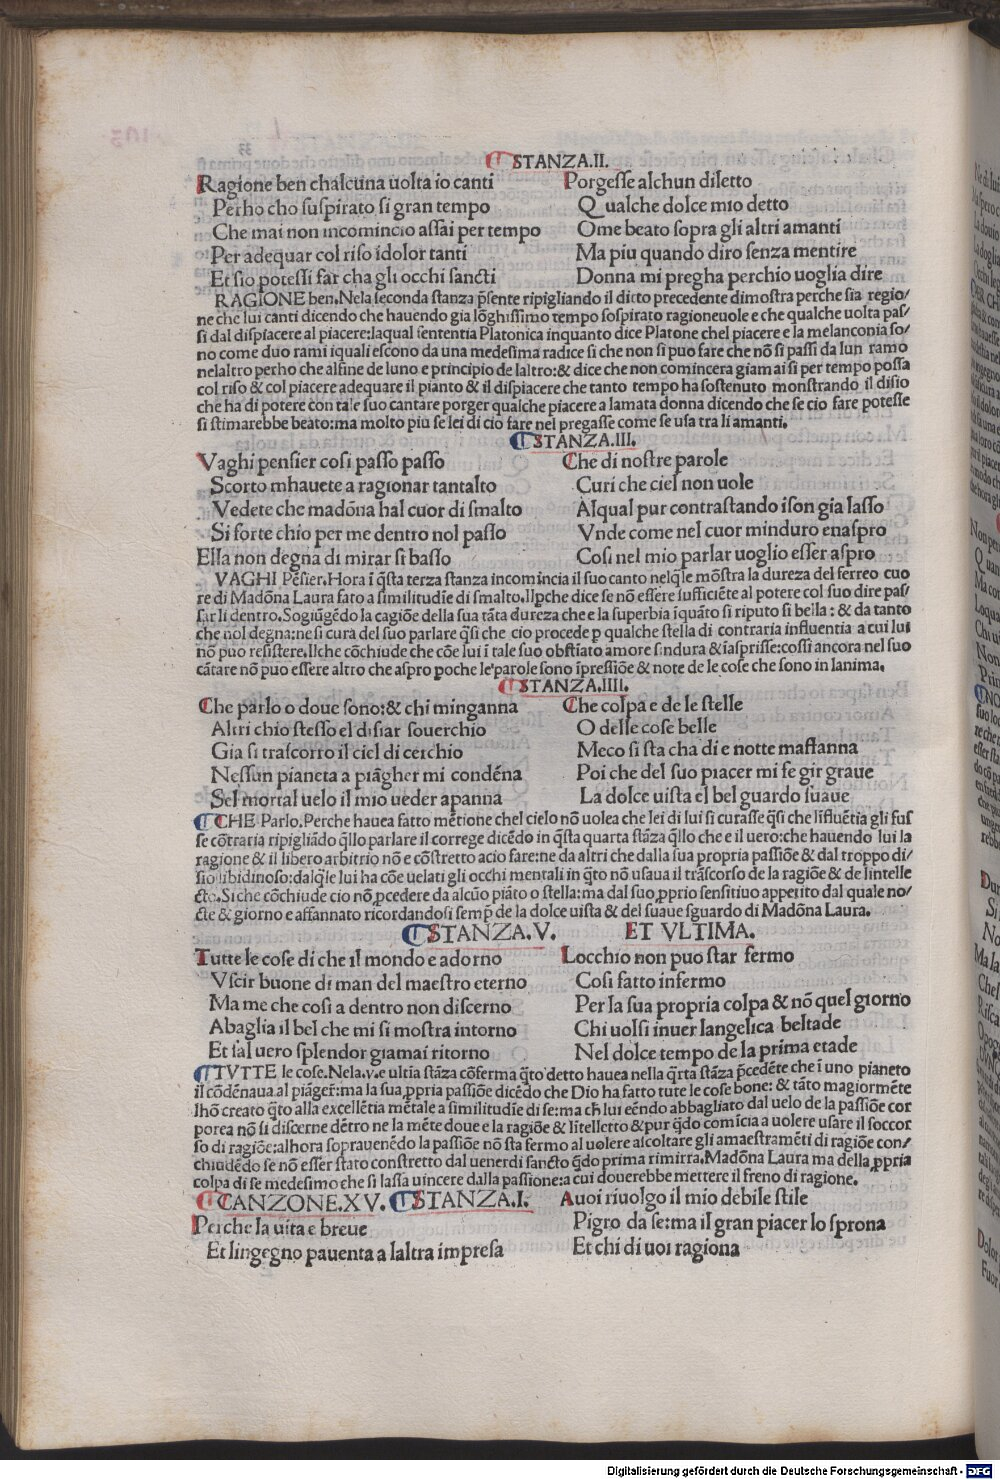 STANZA.II.
Ragione ben chalcuna uolta io canti
Perho cho suspirato si gran tempo
Che mai non incomincio assai per tempo
Per adequar col riso idolor tanti
Et sio potessi far cha gli occhi sancti
Porgesse alchun diletto
Qualche dolce mio detto
Ome beato sopra gli altri amanti
Ma piu quando diro senza mentire
Donna mi pregha perchio uoglia dire
RAGIONE ben. Nela seconda stanza p̃sente ripigliando il dicto precedente dimostra perche sia regio/
ne che lui canti dicendo che hauendo gia lõghissimo tempo sospirato ragioneuole e che qualche uolta pas/
si dal dispiacere al piacere: laqual sententia Platonica inquanto dice Platone chel piacere e la melanconia so/
no come duo rami iquali escono da una medesima radice si che non si puo fare che nõ si passi da lun ramo
nelaltro perho che alfine de luno e principio de laltro: & dice che non comincera giamai si per tempo possa
col riso & col piacere adequare il pianto & il dispiacere che tanto tempo ha sostenuto monstrando il disio
che ha di potere con tale suo cantare porger qualche piacere a lamata donna dicendo che se cio fare potesse
si stimarebbe beato: ma molto piu se lei di cio fare nel pregasse come se usa tra li amanti.
STANZA.III.
Vaghi pensier cosi passo passo
Scorto mhauete a ragionar tantalto
Vedete che madõna hal cuor di smalto
Si forte chio per me dentro nol passo
Ella non degna di mirar si basso
Che di nostre parole
Curi che ciel non uole
Alqual pur contrastando ison gia lasso
Vnde come nel cuor minduro enaspro
Cosi nel mio parlar uoglio esser aspro
VAGHI Pẽsier. Hora ĩ q̃sta terza stanza incomincia il suo canto nelq̃le mõstra la dureza del ferreo cuo
re di Madõna Laura fato a similitudĩe di smalto. Ilpche dice se nõ essere sufficiẽte al potere col suo dire pas/
sar li dentro. Sogiũgẽdo la cagiõe della sua tãta dureza che e la superbia ĩquãto si riputo si bella: & da tanto
che nol degna: ne si cura del suo parlare q̃si che cio procede p qualche stella di contraria influentia a cui lui
nõ puo resistere. Ilche cõchiude che cõe lui ĩ tale suo obstĩato amore sindura & ĩasprisse: cossi ancora nel suo
cãtare nõ puo essere altro che aspro poche le parole sono ĩpressiõe & note de le cose che sono in lanima.
STANZA.IIII.
Che parlo o doue sono: & chi minganna
Altri chio stesso el disiar souerchio
Gia si trascorro il ciel di cerchio
Nessun pianeta a piãgher mi condẽna
Sel mortal uelo il mio ueder apanna
Che colpa e de le stelle
O delle cose belle
Meco si sta cha di e notte maffanna
Poi che del suo piacer mi fe gir graue
La dolce uista el bel guardo suaue
CHE Parlo. Perche hauea fatto mẽtione chel cielo nõ uolea che lei di lui si curasse q̃si che lĩfluẽtia gli fus
se cõtraria ripigliãdo q̃llo parlare il correge dicẽdo in q̃sta quarta stãza q̃llo che e il uero: che hauendo lui la
ragione & il libero arbitrio nõ e cõstretto acio fare: ne da altri che dalla sua propria passiõe & dal troppo di/
sio libidinoso: dalq̃le lui ha cõe uelati gli occhi mentali in q̃to nõ usaua il trãscorso de la ragiõe & de lintelle
cto. Si che cõchiude cio nõ pcedere da alcũo piãto o stella: ma dal suo pprio sensitiuo appetito dal quale no/
cte & giorno e affannato ricordandosi semp̃ de la dolce uista & del suaue sguardo di Madõna Laura.
STANZA.V. ET VLTIMA.
Tutte le cose di che il mondo e adorno
Vscir buone di man del maestro eterno
Ma me che cosi a dentro non discerno
Abaglia il bel che mi si mostra intorno
Et sal uero splendor giamai ritorno
Locchio non puo star fermo
Cosi fatto infermo
Per la sua propria colpa & nõ quel giorno
Chi uolsi inuer langelica beltade
Nel dolce tempo de la prima etade
TVTTE le cose. Nela.v.e ultĩa stãza cõferma q̃to detto hauea nella q̃rta stãza p̃cedẽte che ĩ uno pianeto
il cõdẽnaua al piãger: ma la sua ppria passiõe dicẽdo che Dio ha fatto tute le cose bone: & tãto magiormẽte
lhõ creato q̃to alla excellẽtia mẽtale a similitudĩe di se: ma ch̃ lui eẽndo abbagliato dal uelo de la passiõe cor
porea nõ si discerne dẽtro ne la mẽte doue e la ragiõe & lĩtelletto & pur q̃do comĩcia a uolere usare il soccor
so di ragiõe: alhora soprauenẽdo la passiõe nõ sta fermo al uolere ascoltare gli amaestramẽti di ragiõe con/
chiudẽdo se nõ esser stato constretto dal uenerdi sancto q̃do prima rimirra. Madõna Laura ma della ppria
colpa di se medesimo che si lassa uincere dalla passione: a cui douerebbe mettere il freno di ragione.
CANZONE.XV. STANZA.I.
Perche la uita e breue
Et lingegno pauenta a laltra impresa
Auoi riuolgo il mio debile stile
Pigro da se: ma il gran piacer lo sprona
Et chi di uoi ragiona
Digitalisierung gefördert durch die Deutsche Forschungsgemeinschaft - DFG